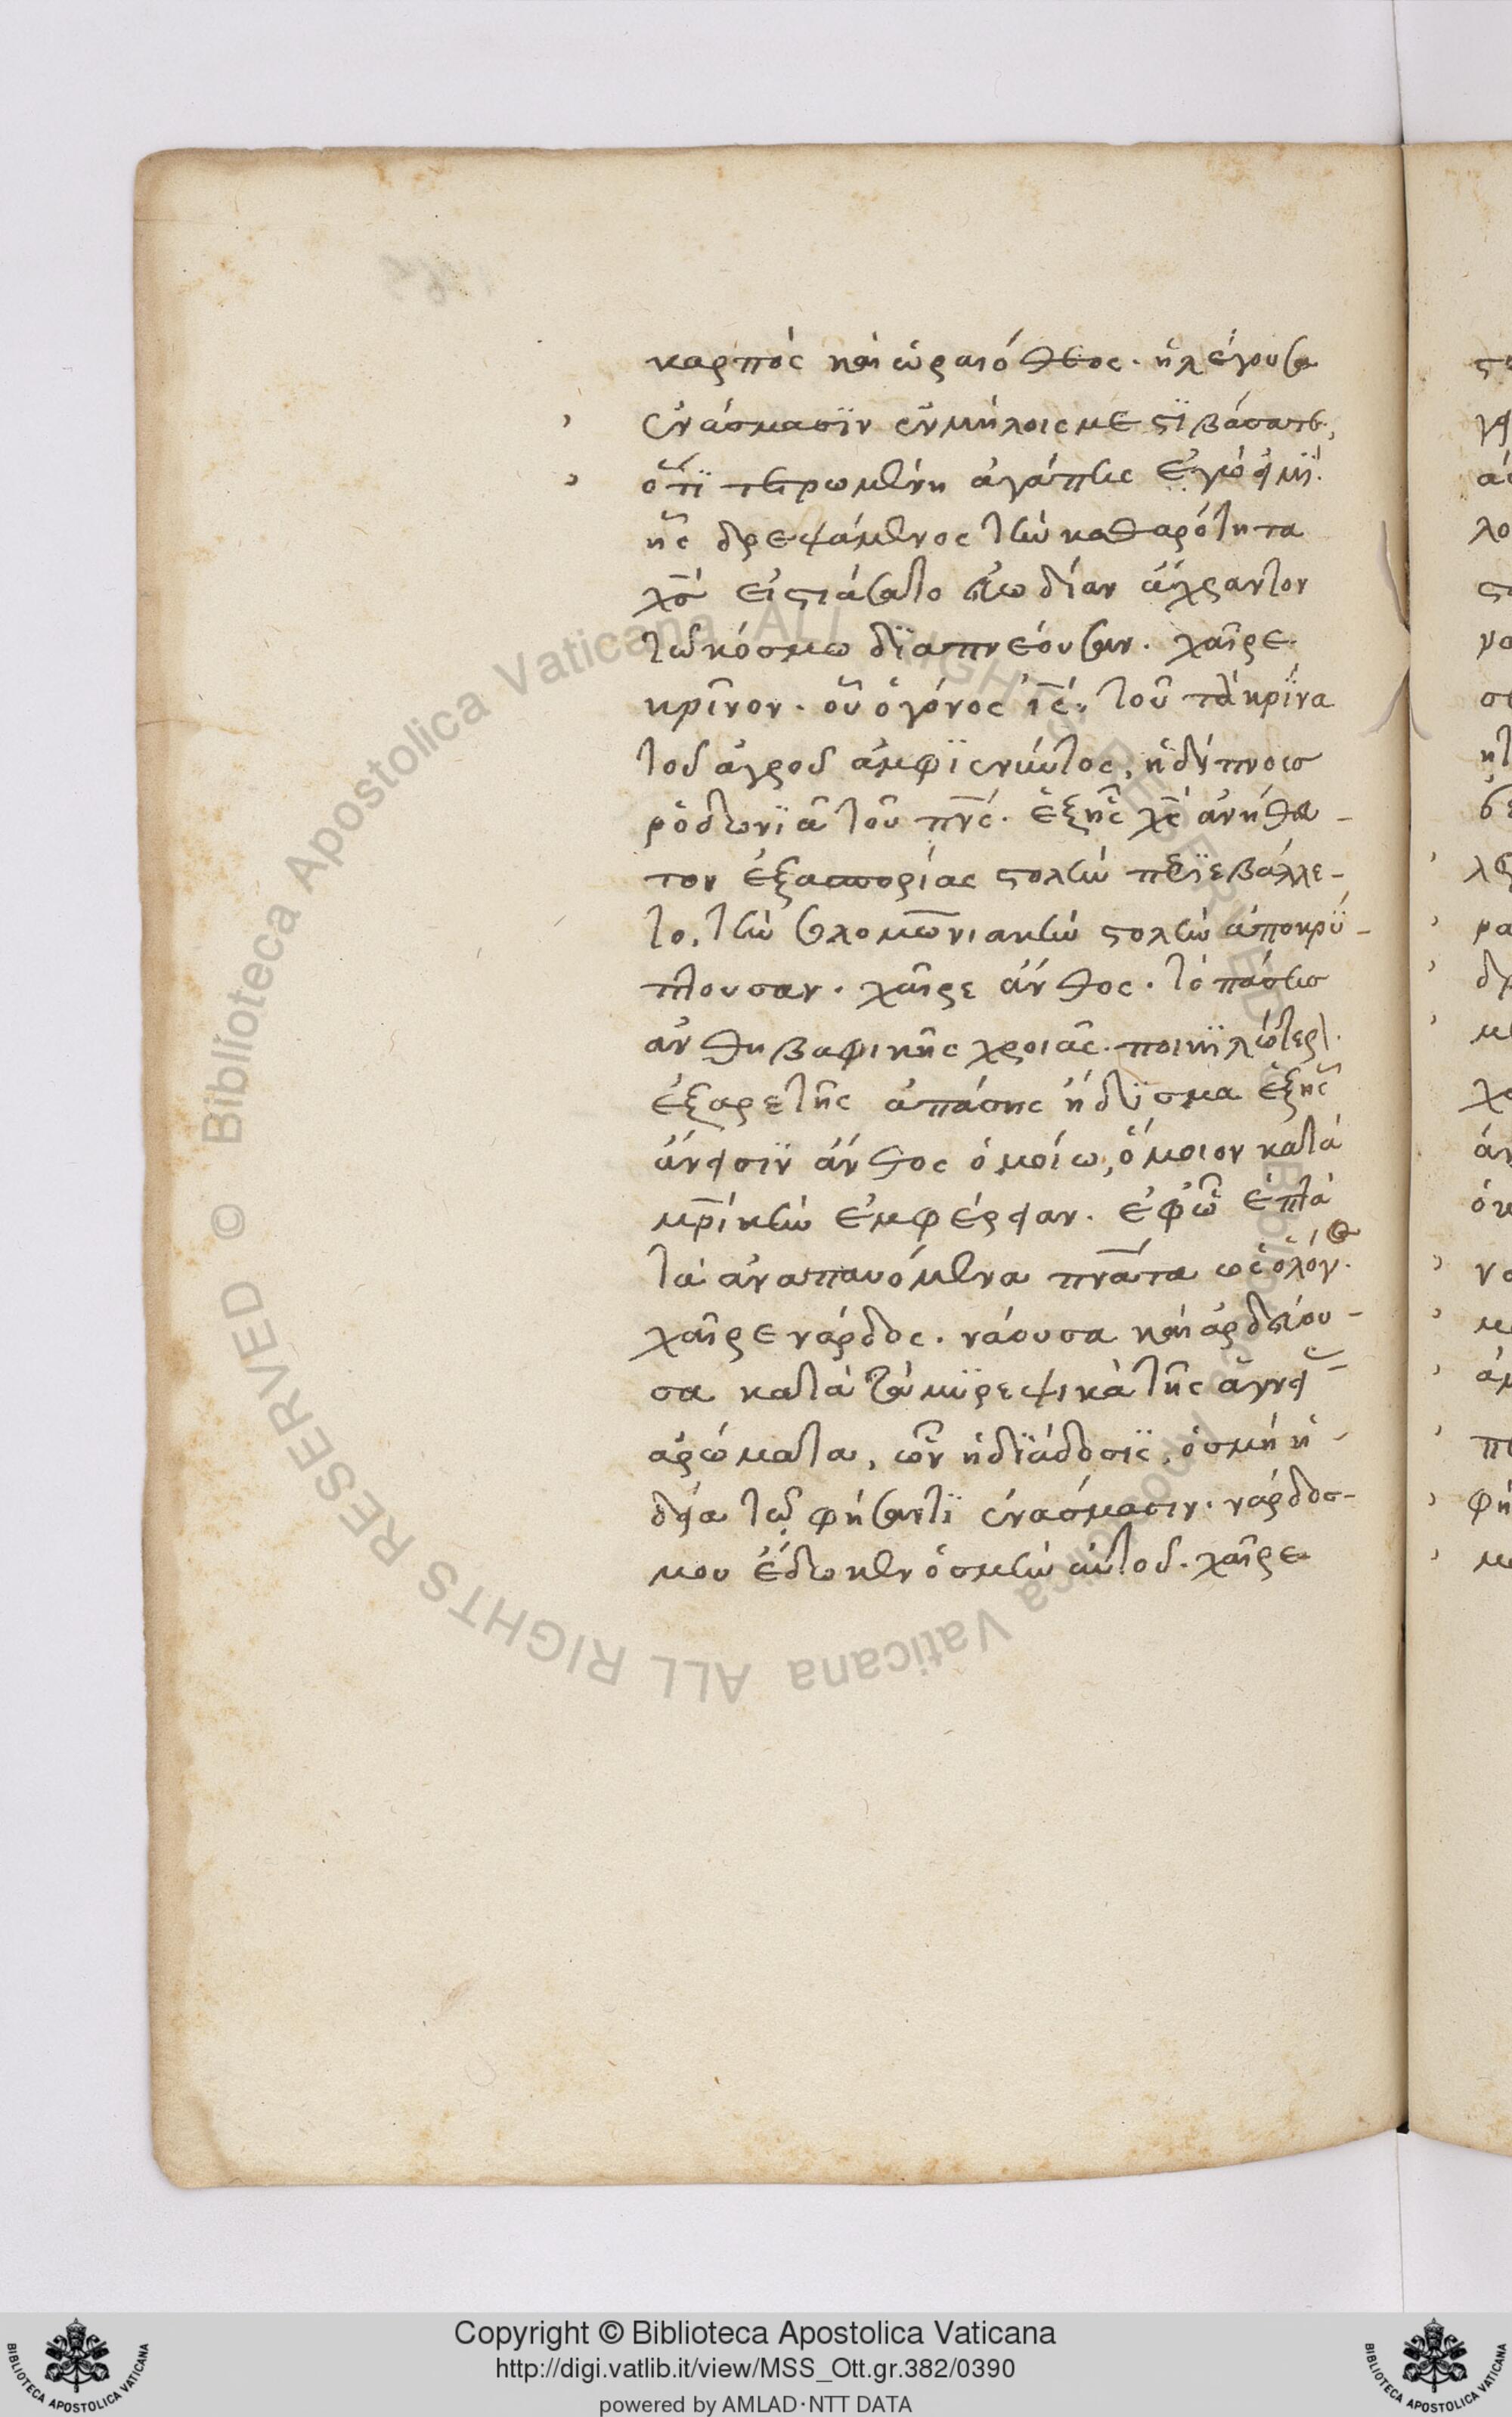 καρπὸς καὶ ὡραιόθεος. ἡ λέγουσα
ἐν ἄσμασϊν ἐν μήλοις με στϊβάσατε,
ὅτϊ τετρωμένη ἀγάπης ἐγὼ εἰμϊ.
ἧς δρεψάμενος τὴν καθαρότητα
χς εἰστιάσατο εὐωδίαν ἄχραντον
τῶ κόσμω δϊαπνέουσαν. χαῖρε
κρῖνον. οὗ ὁ γόνος ις. τοῦ τὰ κρϊνα
τοῦ ἀγροῦ ἀμφϊεννύντος, ἡδύπνοισ
ῥοδωνϊὰ τοῦ πνς. ἐξ ἧς χς
τον ἐξ ἀσπορίας στολὴν περϊεβάλλε-
το, τὴν σολομωνιακὴν στολὴν ἀποκρϋ-
πτουσαν. χαῖρε ἄνθος. τὸ πάσησ
ἀνθηβαφικῆς χροιᾶς. ποικϊλώτερ
ἐξ ἀρετῆς ἁπάσης ἥδϋσμα ἐξ ἧς
ἄνεισϊν ἄνθος ὁμοίω, ὅμοιον κατὰ
μρικὴν ἐμφέρειαν. ἐφ ὧ ἑπτὰ
τὰ ἀναπαυόμενα πνατα ὡς ὁ λόγ.
χαῖρε νάρδος. νάουσα καὶ ἀρδεύου-
σα κατὰ τὰ μϋρεψικὰ τῆς ἁγνεί
ἀρώματα, ὧν ἡ δϊάδοσϊς, ὀσμὴ ἡ-
δεῖα τῶ φήσαντϊ ἐν ἄσμασιν. νάρδοσ-
μου ἔδωκεν ὀσμὴν αὐτοῦ. χαῖρε
Copyright © Biblioteca Apostolica Vaticana
http://digi.vatlib.it/view/MSS_Ott.gr.382/0390
powered by AMLAD·NTT DATA